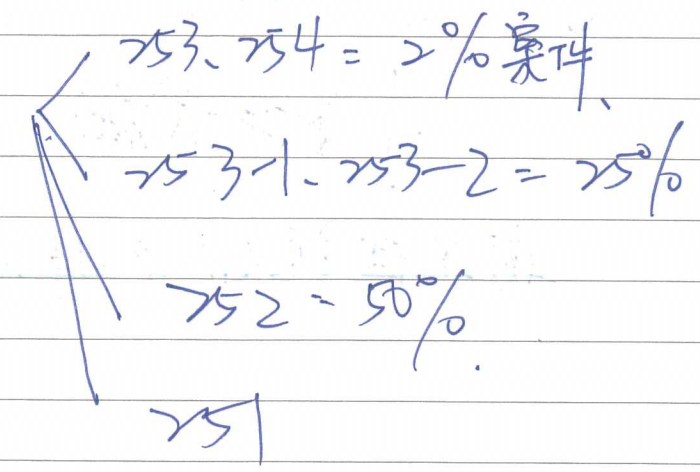 253、254 = 2% 案件、
253-1、253-2 = 25%
252 = 50%.
251